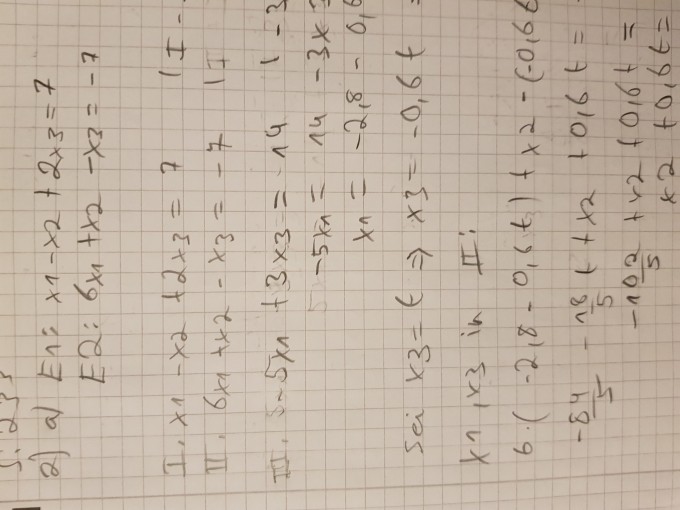 S. 233
2) a) E1: x1 - x2 + 2x3 = 7
E2: 6x1 + x2 - x3 = -7
I. x1 - x2 + 2x3 = 7 | I -
II. 6x1 + x2 - x3 = -7 | I
III. -5x1 + 3x3 = 14 | -3
-5x1 = 14 - 3x3
x1 = -2,8 - 0,6
sei x3 = t => x3 = -0,6t
x1, x3 in II:
6·( -2,8 - 0,6t ) + x2 - (-0,6t
-84/5 - 18/5 t + x2 + 0,6t =
-102/5 + x2 + 0,6t =
x2 + 0,6t =